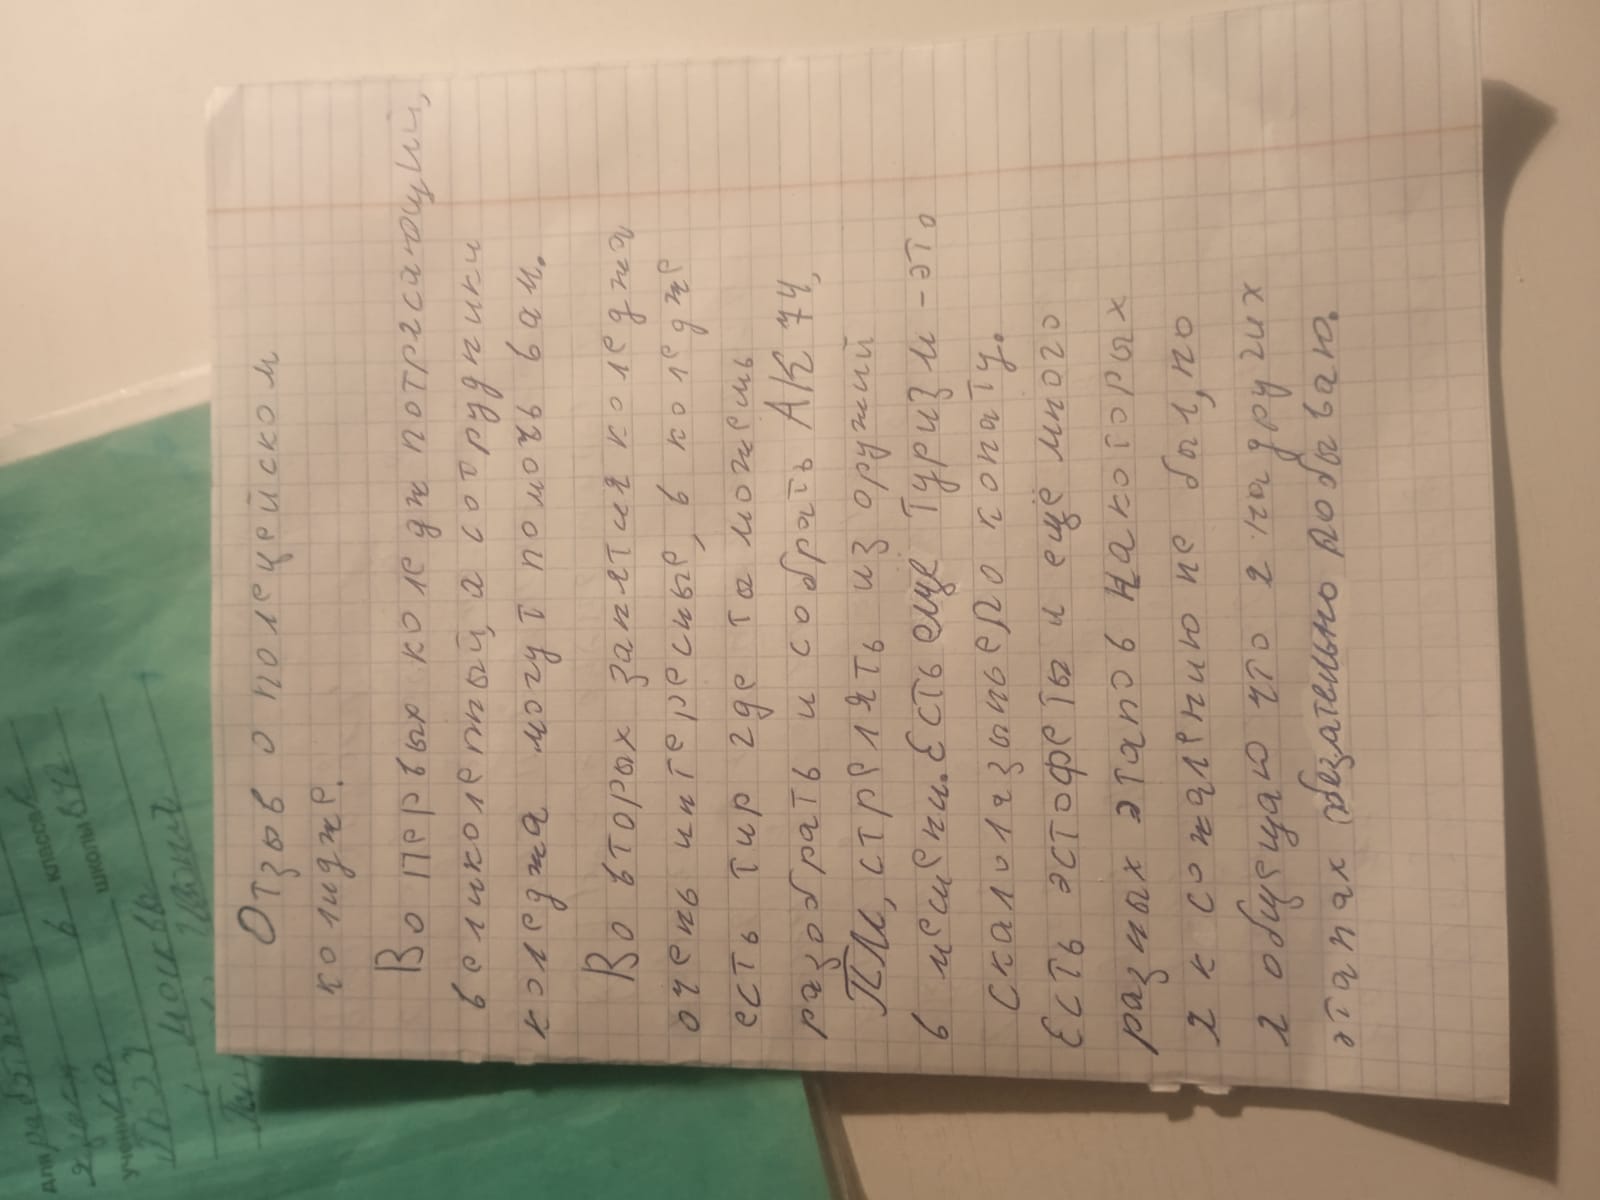 Отзыв о полецейском
колидже.
Во первых коледж потрясающий,
великолепный, а сотрудники
коледжа могут помочь вам.
Во вторых занятия коледжа
очень интересные, в коледже
есть тир где ты можешь
разобрать и собрать АК 74,
ПМ, стрелять из оружий
в мешени. Есть ещё Туризм - это
скалолязыньепо копату.
Есть эстофеты и ещё много
разных этапов на которых
я к сожалению не был, но
я обещаю что я на других
этапах обезательно робываю.
для работ по
язык
6 класса Б
ученика
школы
москвы